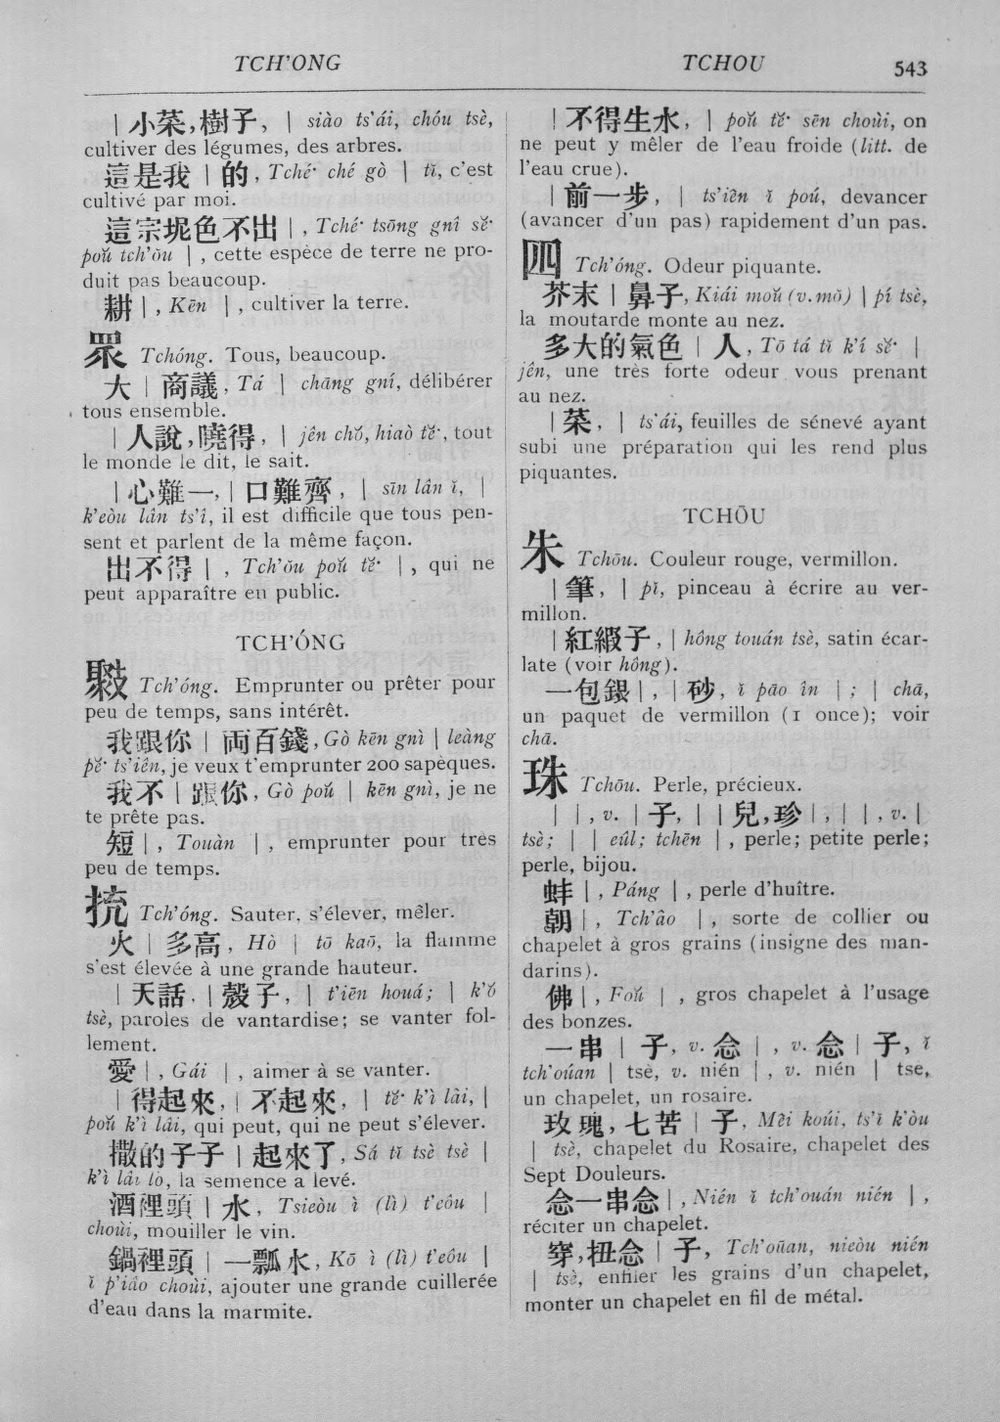 TCH'ONG TCHOU 543
| 小菜,樹子, | siào ts'ái, chóu tsè,
cultiver des légumes, des arbres.
這是我 | 的, Tché· ché gò | tĭ, c'est
cultivé par moi.
這宗坭色不出 | , Tché· tsōng gnî sĕ·
poŭ tch'ŏu | , cette espèce de terre ne pro-
duit pas beaucoup.
耕 | , Kēn | , cultiver la terre.
眾 Tchóng. Tous, beaucoup.
大 | 商議, Tá | chāng gní, délibérer
tous ensemble.
| 人說,曉得, | jên chŏ, hiaò tĕ·, tout
le monde le dit, le sait.
| 心難一, | 口難齊, | sīn lân ĭ, |
k'eòu lân ts'î, il est difficile que tous pen-
sent et parlent de la même façon.
出不得 | , Tch'ŏu poŭ tĕ· | , qui ne
peut apparaître en public.
TCH'ÓNG
Tch'óng. Emprunter ou prêter pour
peu de temps, sans intérêt.
我跟你 | 両百錢, Gò kēn gnì | leàng
pĕ· ts'iên, je veux t'emprunter 200 sapèques.
我不 | 跟你, Gò poŭ | kēn gnì, je ne
te prête pas.
短 | , Touàn | , emprunter pour très
peu de temps.
㧤 Tch'óng. Sauter, s'élever, mêler.
火 | 多高, Hò | tō kaō, la flamme
s'est élevée à une grande hauteur.
| 天話, | 殼子, | t'iēn houá; | k'ŏ
tsè, paroles de vantardise; se vanter fol-
lement.
愛 | , Gái | , aimer à se vanter.
| 得起來, | 不起來, | tĕ· k'ì lâi, |
poŭ k'ì lâi, qui peut, qui ne peut s'élever.
撒的子子 | 起來了, Sá tĭ tsè tsè |
k'ì lâi lò, la semence a levé.
酒裡頭 | 水, Tsieòu ì (lì) t'eôu |
choùi, mouiller le vin.
鍋裡頭 | 一瓢水, Kō ì (lì) t'eôu |
ĭ p'iâo choùi, ajouter une grande cuillerée
d'eau dans la marmite.
| 不得生水, | poŭ tĕ· sēn choùi, on
ne peut y mêler de l'eau froide (litt. de
l'eau crue).
| 前一步, | ts'iên ĭ poú, devancer
(avancer d'un pas) rapidement d'un pas.
Tch'óng. Odeur piquante.
芥末 | 鼻子, Kiái moŭ (v. mŏ) | pí tsè,
la moutarde monte au nez.
多大的氣色 | 人, Tō tá tĭ k'í sĕ· |
jên, une très forte odeur vous prenant
au nez.
| 菜, | ts'ái, feuilles de sénevé ayant
subi une préparation qui les rend plus
piquantes.
TCHŌU
朱 Tchōu. Couleur rouge, vermillon.
| 筆, | pĭ, pinceau à écrire au ver-
millon.
| 紅緞子, | hông touán tsè, satin écar-
late (voir hông).
一包銀 | , | 砂, ĭ pāo în | ; | chā,
un paquet de vermillon (1 once); voir
chā.
珠 Tchōu. Perle, précieux.
| | , v. | 子, | | 兒,珍 | , | | , v. |
tsè; | | eûl; tchēn | , perle; petite perle;
perle, bijou.
蚌 | , Páng | , perle d'huître.
朝 | , Tch'âo | , sorte de collier ou
chapelet à gros grains (insigne des man-
darins).
佛 | , Foŭ | , gros chapelet à l'usage
des bonzes.
一串 | 子, v. 念 | , v. 念 | 子, ĭ
tch'oúan | tsè, v. nién | , v. nién | tse,
un chapelet, un rosaire.
玫瑰,七苦 | 子, Mêi koúi, ts'ĭ k'òu
| tsè, chapelet du Rosaire, chapelet des
Sept Douleurs.
念一串念 | , Nién ĭ tch'ouán nién | ,
réciter un chapelet.
穿,扭念 | 子, Tch'oūan, nieòu nién
| tsè, enfiler les grains d'un chapelet,
monter un chapelet en fil de métal.